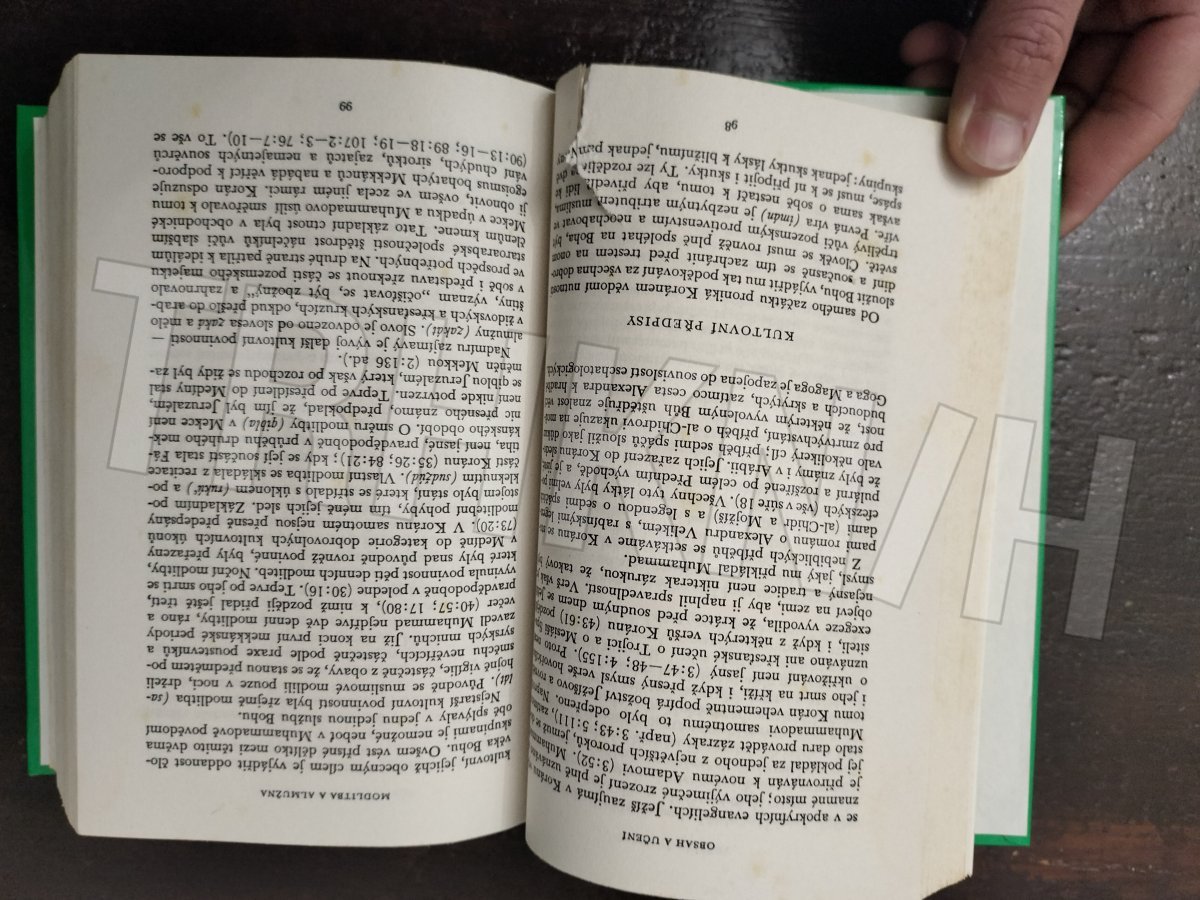 OBSAH A UČENÍ
se v apokryfních evangeliích. Ježíš zaujímá v Koránu
znamné místo; jeho výjimečné zrození je plně uznáváno
je přirovnáván k novému Adamovi (3:52). Muham
jej pokládal za jednoho z největších proroků, jemuž se do
stalo daru provádět zázraky (např. 3:43; 5:111), zatím
Muhammadovi samotnému to bylo odepřeno. Napro
tomu Korán vehementně popírá božství Ježíšovo a rovně
i jeho smrt na kříži, i když přesný smysl verše hovořícího
o ukřižování není jasný (3:47—48; 4:155). Proto není
uznáváno ani křesťanské učení o Trojici a o Mesiáši
siteli, i když z některých veršů Koránu (43:61) pozdější
exegeze vyvodila, že krátce před soudným dnem se
objeví na zemi, aby ji naplnil spravedlností. Verš však
nejasný a tradice není nikterak zárukou, že takový by
smysl, jaký mu přikládal Muhammad.
Z nebiblických příběhů se setkáváme v Koránu se stop
pami románu o Alexandru Velikém, s rabínskými legen
dami (al-Chidr a Mojžíš) a s legendou o sedmi spáčích
efezských (vše v súře 18). Všechny tyto látky byly velmi po-
pulární a rozšířené po celém Předním východě, a je jisté,
že byly známy i v Arábii. Jejich zařazení do Koránu sledo
valo několikerý cíl; příběh sedmi spáčů sloužil jako důkaz
pro zmrtvýchvstání, příběh o al-Chidrovi ukazuje na mož
nost, že některým vyvoleným Bůh uštědřuje znalost věcí
budoucích a skrytých, zatímco cesta Alexandra k hradbě
Goga a Magoga je zapojena do souvislostí eschatologických
KULTOVNÍ PŘEDPISY
Od samého začátku proniká Koránem vědomí nutnosti
sloužit Bohu, vyjádřit mu tak poděkování za všechna dobro-
diní a současně se tím zachránit před trestem na onom
světě. Člověk se musí rovněž plně spoléhat na Boha, být
trpělivý vůči pozemským protivenstvím a neochabovat ve
víře. Pevná víra (ímán) je nezbytným atributem muslima,
avšak sama o sobě nestačí k tomu, aby přivedla lidi ke
spáse, musí se k ní připojit i skutky. Ty lze rozdělit na dvě
skupiny: jednak skutky lásky k bližnímu, jednak
98
MODLITBA A ALMUŽNA
kultovní, jejichž obecným cílem je vyjádřit oddanost člo-
věka Bohu. Ovšem vést přísné dělítko mezi těmito dvěma
skupinami je nemožné, neboť v Muhammadově povědomí
obě splývaly v jednu jedinou službu Bohu.
Nejstarší kultovní povinností byla zřejmě modlitba (sa-
lát). Původně se muslimové modlili pouze v noci, drželi
hojné vigilie, částečně z obavy, že se stanou předmětem po-
směchu nevěřících, částečně podle praxe poustevníků a
syrských mnichů. Již na konci první mekkánské periody
zavedl Muhammad nejdříve dvě denní modlitby, ráno a
večer (40:57; 17:80), k nimž později přidal ještě třetí,
pravděpodobně v poledne (30:16). Teprve po jeho smrti se
vyvinula povinnost pěti denních modliteb. Noční modlitby,
které byly snad původně rovněž povinné, byly přeřazeny
v Medíně do kategorie dobrovolných kultovních úkonů
(73:20). V Koránu samotném nejsou přesně předepsány
modlitební pohyby, tím méně jejich sled. Základním po-
stojem bylo stání, které se střídalo s úklonem (rukúʿ) a po-
kleknutím (sudžúd). Vlastní modlitba se skládala z recitace
částí Koránu (35:26; 84:21); kdy se její součástí stala Fá-
tiha, není jasné, pravděpodobně v průběhu druhého mek-
kánského období. O směru modlitby (qibla) v Mekce není
nic přesného známo, předpoklad, že jím byl Jeruzalém,
není nikde potvrzen. Teprve po přesídlení do Medíny stal
se qiblou Jeruzalém, který však po rozchodu se židy byl za-
měněn Mekkou (2:136 ad.).
Nadmíru zajímavý je vývoj další kultovní povinnosti —
almužny (zakát). Slovo je odvozeno od slovesa zaká a mělo
v židovských a křesťanských kruzích, odkud přešlo do arab-
štiny, význam „očišťovat se, být zbožný“ a zahrnovalo
v sobě i představu zřeknout se části pozemského majetku
ve prospěch potřebných. Na druhé straně patřila k ideálům
staroarabské společnosti štědrost náčelníků vůči slabším
členům kmene. Tato základní ctnost byla v obchodnické
Mekce v úpadku a Muhammadovo úsilí směřovalo k tomu
ji obnovit, ovšem ve zcela jiném rámci. Korán odsuzuje
egoismus bohatých Mekkánců a nabádá věřící k podporo-
vání chudých, sirotků, zajatců a nemajetných souvěrců
(90:13—16; 89:18—19; 107:2—3; 76:7—10). To vše se
99